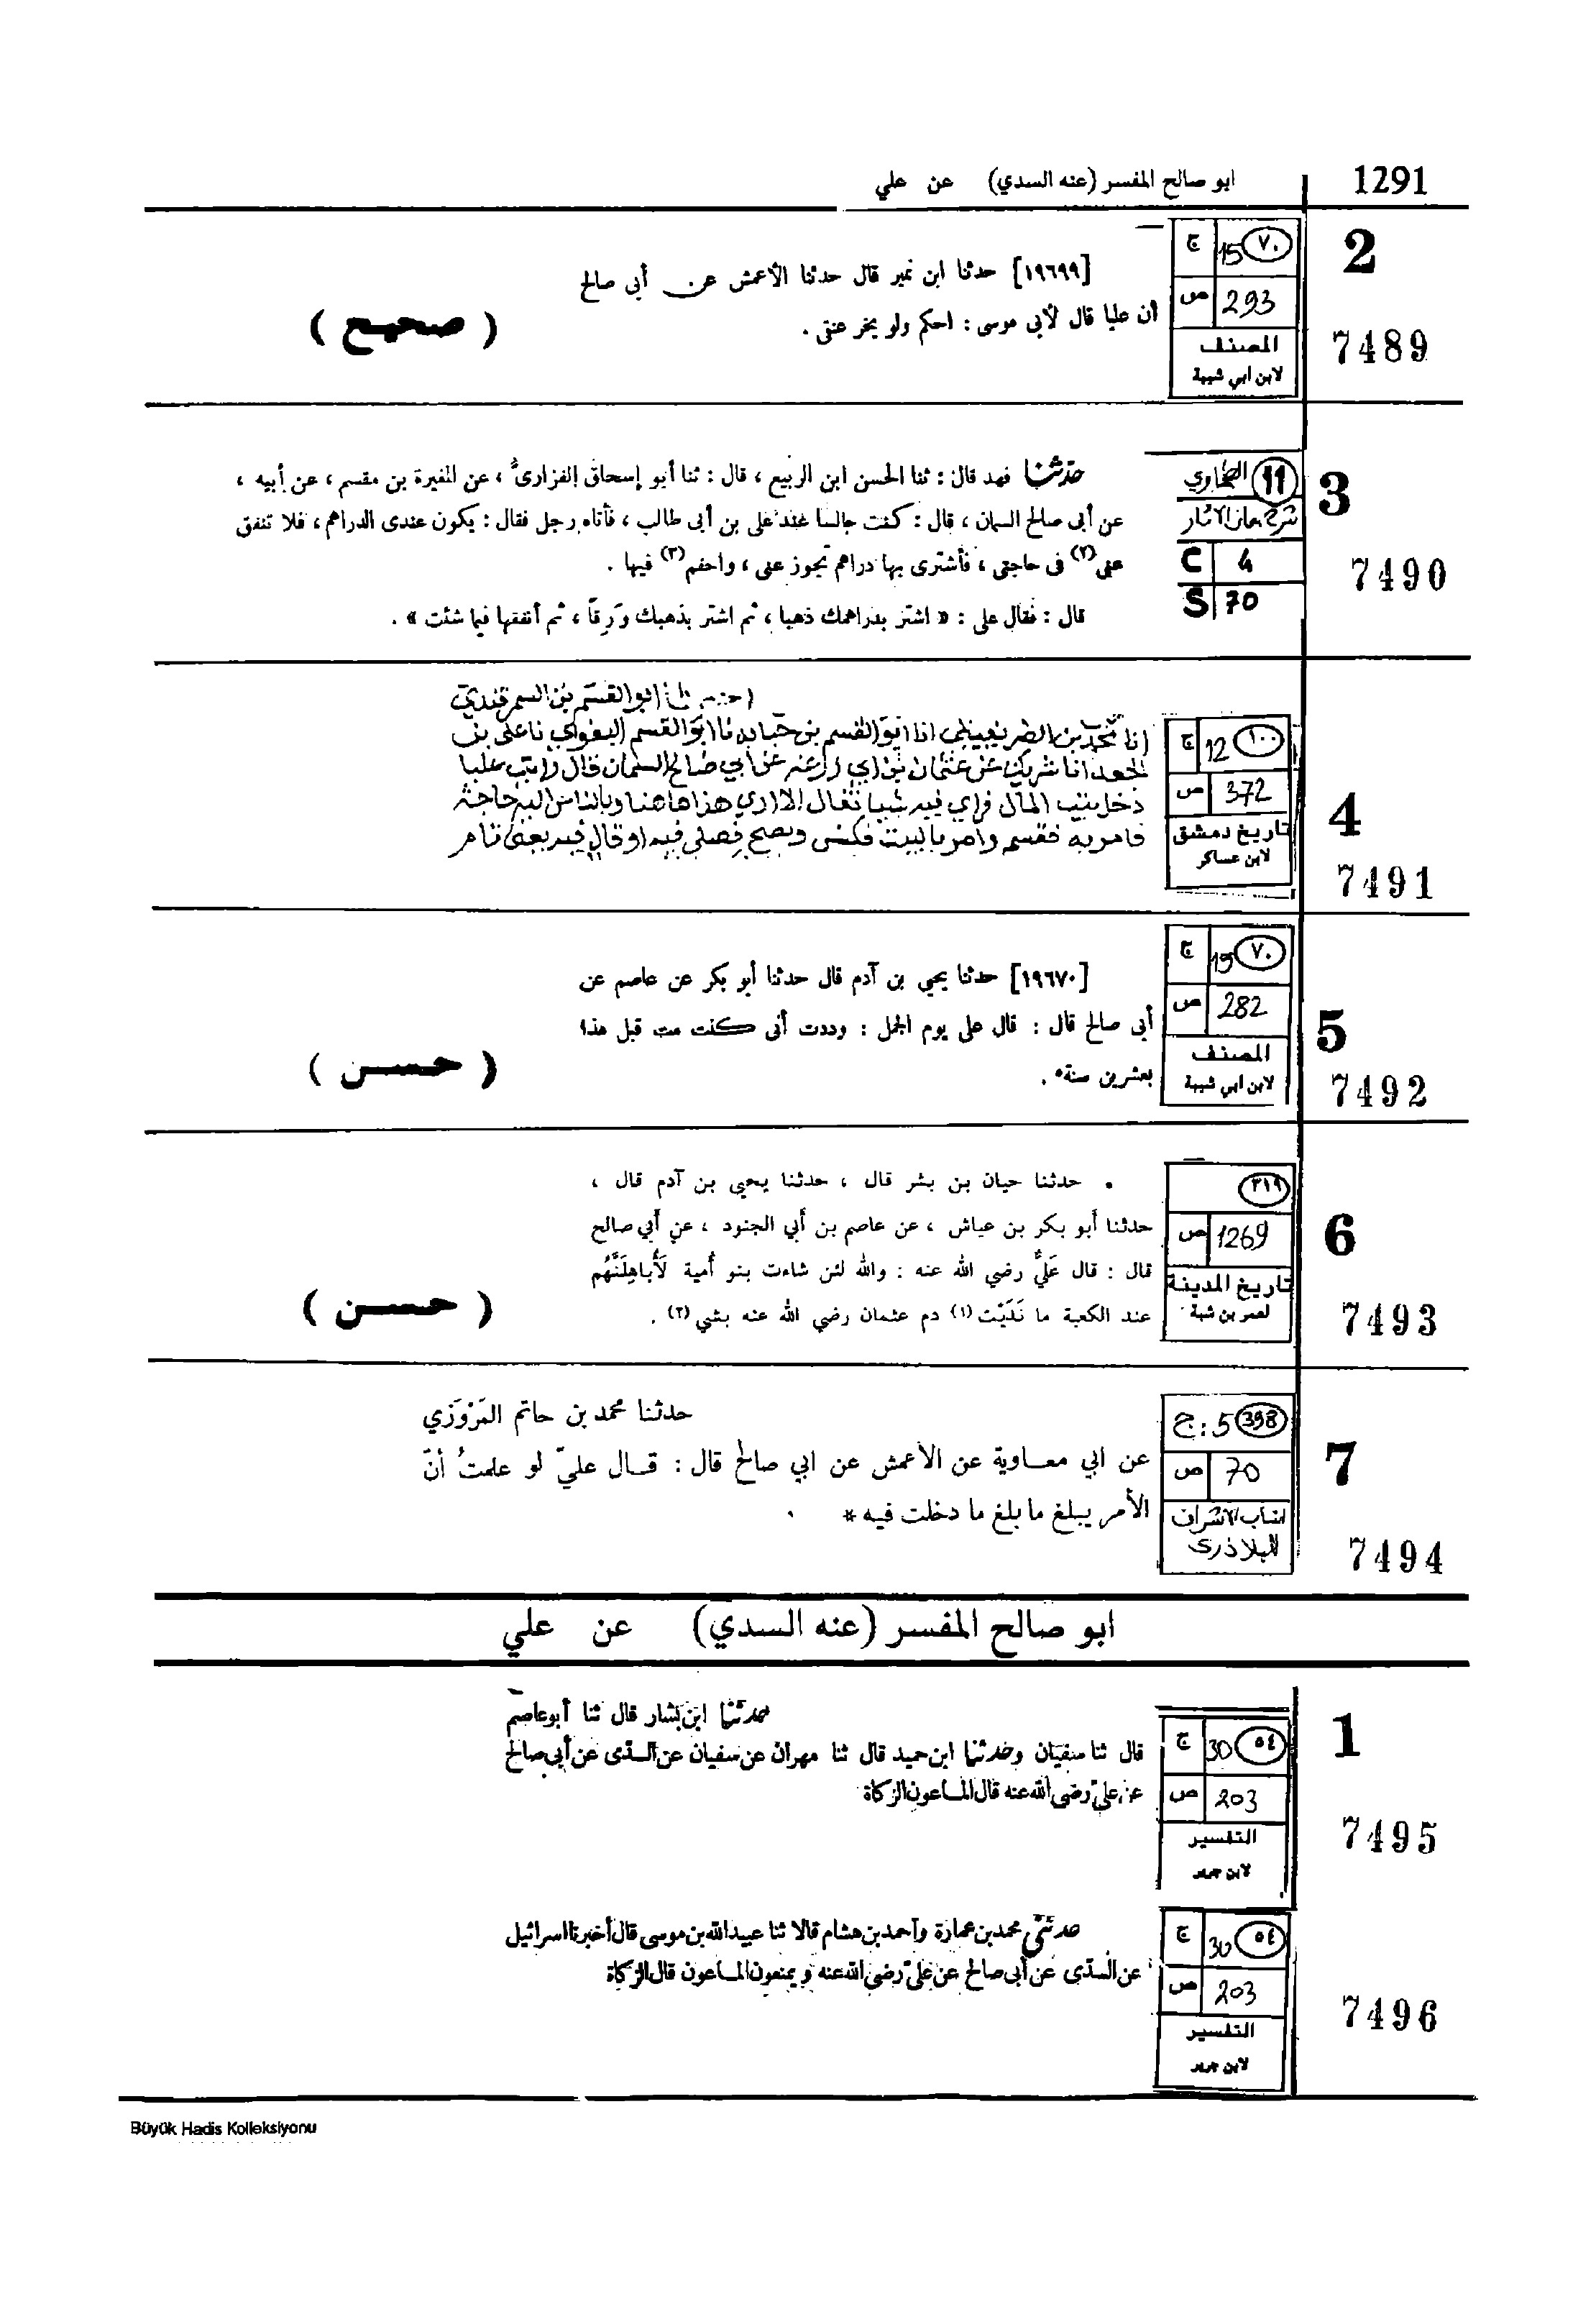 ابو صالح المفسر (عنه السدي) عن علي
1291
2
ج 15 ٧٠
ص 293
المصنف
لابن ابي شيبة
7489
[١٩٦٩٩] حدثنا ابن نمير قال حدثنا الأعمش عن أبي صالح
أن عليا قال لأبي موسى : احكم ولو يخر عنقي .
( صحيح )
3
11 الطحاوي
شرح معاني الآثار
C 4
S 70
7490
حدثنا فهد قال : ثنا الحسن ابن الربيع ، قال : ثنا أبو إسحاق الفزارى ، عن المغيرة بن مقسم ، عن أبيه ،
عن أبى صالح السمان ، قال : كنت جالسا عند على بن أبى طالب ، فأتاه رجل فقال : يكون عندى الدراهم ، فلا تنفق
عنى(٢) فى حاجتى ، فأشترى بها دراهم تجوز عنى ، واحضم(٣) فيها .
قال : فقال على : « اشتر بدراهمك ذهبا ، ثم اشتر بذهبك وَرِقًا ، ثم أنفقها فيما شئت » .
4
ج 12 ١٠٠
ص 372
تاريخ دمشق
لابن عساكر
7491
ابو القسم بن السمرقندي
انا ابو القسم بن حبابه نا ابو القسم البغوي نا على بن
الجعد انا شريك عن عثمان بن ابي زرعه عن ابي صالح السمان قال رايت عليا
دخل بيت المال فراي فيه شيا فقال الا اري هذا هاهنا وبالناس اليه حاجة
فامر به فقسم وامر بالبيت فكنس ونضح فصلى فيه او قال فيه يعنى نام
5
ج 15 ٧٠
ص 282
المصنف
لابن ابي شيبة
7492
[١٩٦٧٠] حدثنا يحيي بن آدم قال حدثنا أبو بكر عن عاصم عن
أبى صالح قال : قال على يوم الجمل : وددت أنى كنت مت قبل هذا
بعشرين سنة .
( حسن )
6
٣١٩
ص 1269
تاريخ المدينة
لعمر بن شبة
7493
• حدثنا حيان بن بشر قال ، حدثنا يحيى بن آدم قال ،
حدثنا أبو بكر بن عياش ، عن عاصم بن أبي الجنود ، عن أبي صالح
قال : قال عَليٌّ رضي الله عنه : والله لئن شاءت بنو أمية لَأُباهِلَنَّهُم
عند الكعبة ما نَدَيْت (١) دم عثمان رضي الله عنه بشي (٢) .
( حسن )
7
ج : 5 398
ص 70
انساب الاشراف
للبلاذرى
7494
حدثنا محمد بن حاتم المَرْوَزي
عن ابي معاوية عن الأعمش عن ابي صالح قال : قال عليّ لو علمتُ أنّ
الأمر يبلغ ما بلغ ما دخلت فيه *
ابو صالح المفسر (عنه السدي) عن علي
1
ج 30 ٥٤
ص 203
التفسير
لابن جرير
7495
حدثنا ابن بشار قال ثنا أبو عاصم
قال ثنا سفيان وحدثنا ابن حميد قال ثنا مهران عن سفيان عن السدى عن أبى صالح
عن على رضى الله عنه قال الماعون الزكاة
ج 30 ٥٤
ص 203
التفسير
لابن جرير
7496
حدثنى محمد بن عمارة وأحمد بن هشام قالا ثنا عبيد الله بن موسى قال أخبرنا اسرائيل
عن السدى عن أبى صالح عن على رضى الله عنه ويمنعون الماعون قال الزكاة
Büyük Hadis Kolleksiyonu